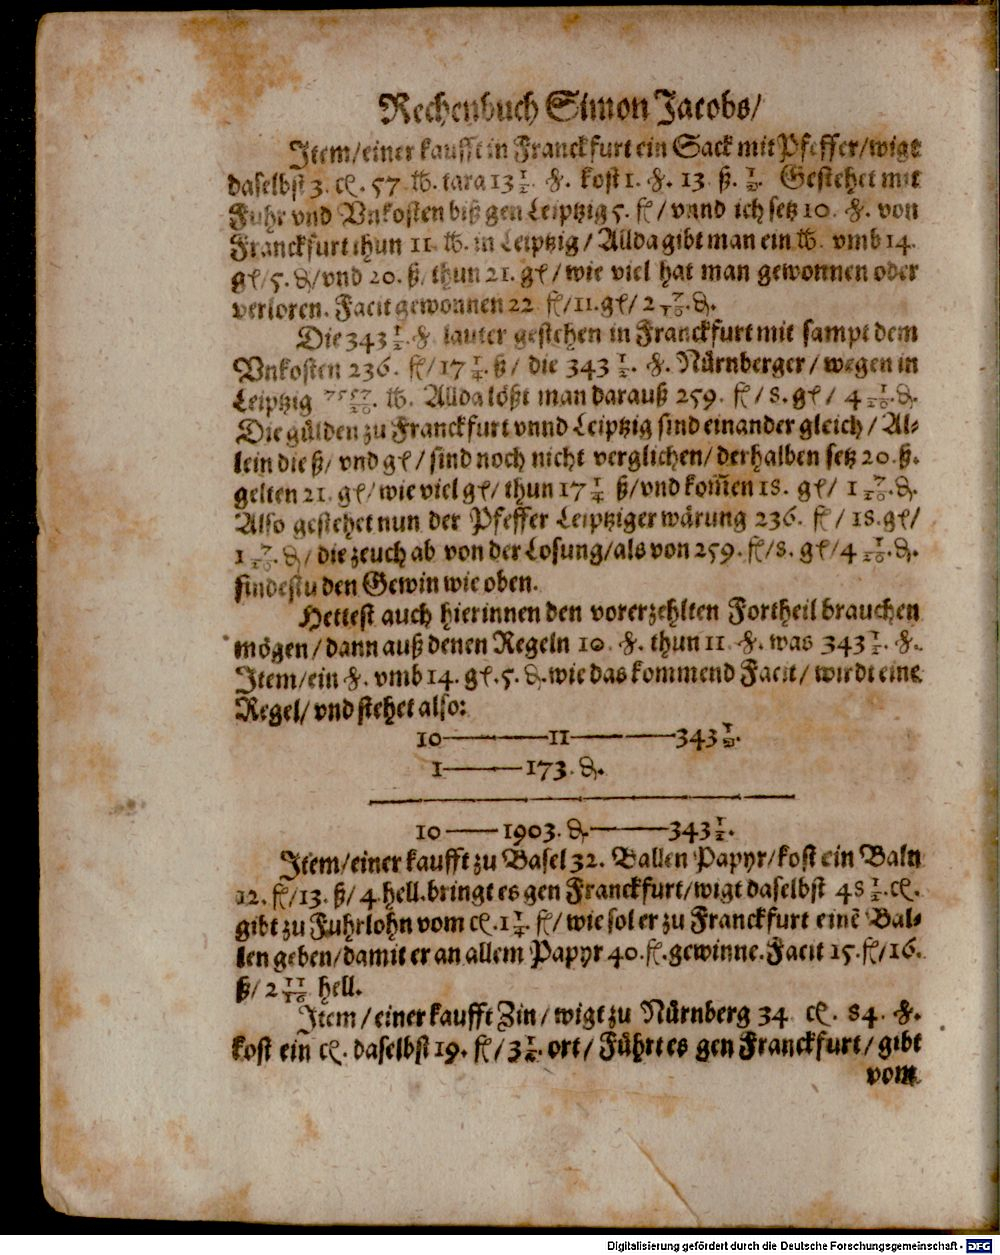 Rechenbuch Simon Jacobs/
Item/einer kaufft in Franckfurt ein Sack mit Pfeffer/wigt
daselbst 3. cl. 57 lb. tara 13 1/2. lb. kost 1. lb. 13 ß. 1/2. Gestehet mit
Fuhr vnd Vnkosten biß gen Leiptzig 5. fl/ vnnd ich setz 10. lb. von
Franckfurt thun 11. lb. in Leiptzig/ Allda gibt man ein lb. vmb 14.
gl/5. ₰/vnd 20. ß/ thun 21. gl/ wie viel hat man gewonnen oder
verloren. Facit gewonnen 22 fl/11.gl/ 2 7/10.₰.
Die 343 1/2. lb lauter gestehen in Franckfurt mit sampt dem
Vnkosten 236. fl/17 1/4.ß/ die 343 1/2. lb. Nürnberger/ wegen in
Leiptzig 7557/20. lb. Allda lößt man darauß 259. fl/ 8.gl/ 4 1/20.₰.
Die gülden zu Franckfurt vnnd Leiptzig sind einander gleich/ Al⸗
lein die ß/ vnd gl/ sind noch nicht verglichen/ derhalben setz 20.ß.
gelten 21. gl/ wie viel gl/ thun 17 1/4 ß/vnd kom̃en 18. gl/ 1 7/20.₰.
Also gestehet nun der Pfeffer Leiptziger wärung 236. fl/ 18.gl/
1 7/20. ₰/ die zeuch ab von der Losung/als von 259. fl/8. gl/4 1/20.₰.
findestu den Gewin wie oben.
Hettest auch hierinnen den vorerzehlten Fortheil brauchen
mögen/ dann auß denen Regeln 10. lb. thun 11. lb. was 343 1/2. lb.
Item/ein lb. vmb 14. gl. 5. ₰. wie das kommend Facit/ wirdt eine
Regel/ vnd stehet also:
10——11——343 1/2.
1——173. ₰.
10——1903. ₰.——343 1/2.
Item/einer kaufft zu Basel 32. Ballen Papyr/kost ein Baln
12. fl/13. ß/ 4 hell. bringt es gen Franckfurt/wigt daselbst 48 1/2.cl.
gibt zu Fuhrlohn vom cl. 1 1/4. fl/ wie sol er zu Franckfurt einẽ Bal⸗
len geben/damit er an allem Papyr 40.fl.gewinne. Facit 15.fl/16.
ß/ 2 11/16 hell.
Item/ einer kaufft Zin/ wigt zu Nürnberg 34 cl. 84. lb.
kost ein cl. daselbst 19. fl/ 3 1/2. ort/ Führt es gen Franckfurt/ gibt
vom
Digitalisierung gefördert durch die Deutsche Forschungsgemeinschaft - DFG